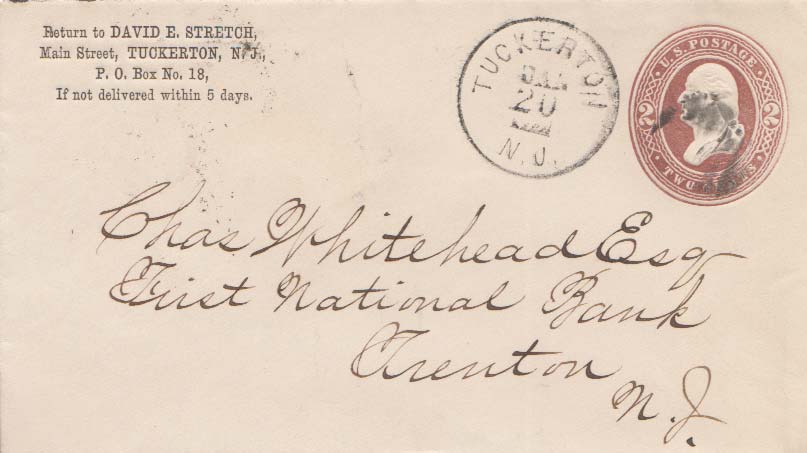 Return to DAVID E. STRETCH,
Main Street, TUCKERTON, N.J.,
P. O. Box No. 18,
If not delivered within 5 days.
TUCKERTON
20
N.J.
U.S. POSTAGE
2 2
TWO CENTS
Chas Whitehead Esq
First National Bank
Trenton
N.J.